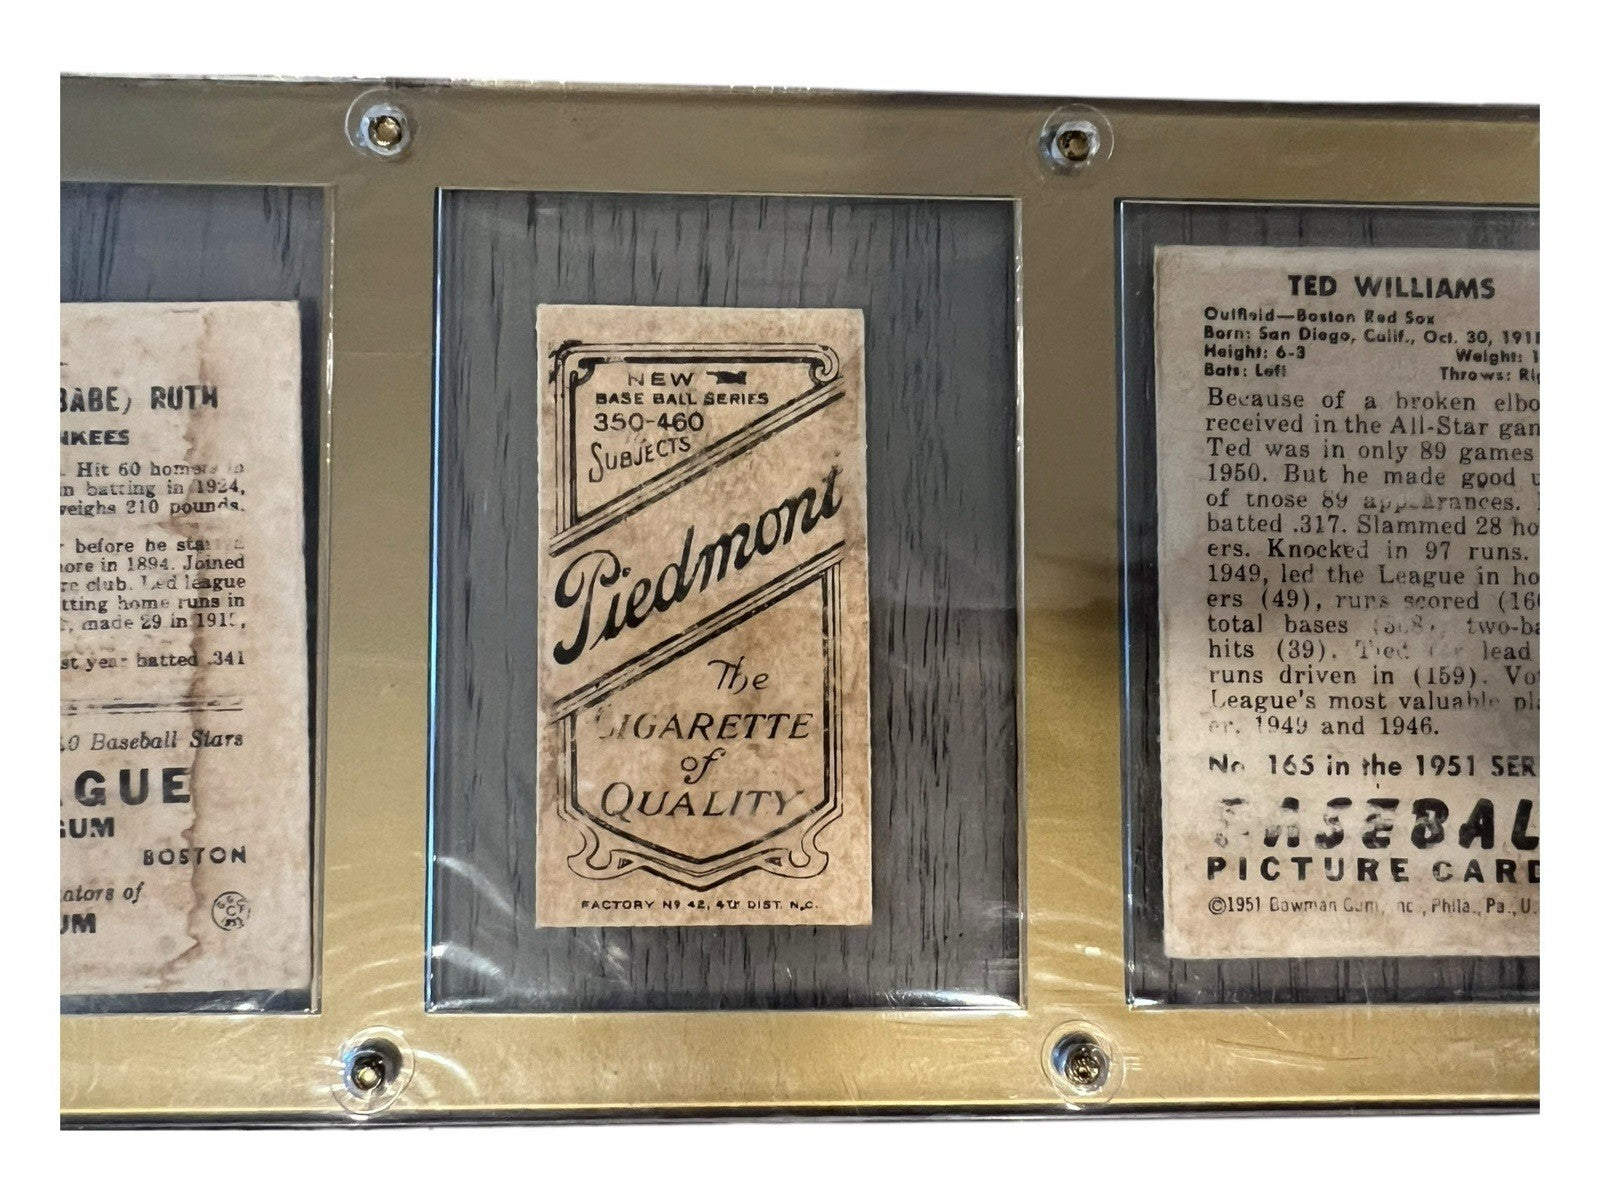 BABE) RUTH
NKEES
. Hit 60 homers in
n batting in 1924,
weighs 210 pounds.
before he
ore in 1894. Joined
re club. Led league
tting home runs in
, made 29 in
st year batted .341
Baseball Stars
GUE
GUM
BOSTON
ators of
UM
NEW
BASE BALL SERIES
350-460
SUBJECTS
Piedmont
The
CIGARETTE
of
QUALITY
FACTORY Nº 42, 4TH DIST. N.C.
TED WILLIAMS
Outfield—Boston Red Sox
Born: San Diego, Calif., Oct. 30, 191
Height: 6-3 Weight: 1
Bats: Left Throws: Rig
Because of a broken elbo
received in the All-Star gam
Ted was in only 89 games
1950. But he made good
of those 89 appearances.
batted .317. Slammed 28 ho
ers. Knocked in 97 runs.
1949, led the League in ho
ers (49), runs scored (16
total bases two-ba
hits (39). Tied for lead
runs driven in (159). Vo
League's most valuable pla
er, 1949 and 1946.
No. 165 in the 1951 SER
BASEBAL
PICTURE CARD
©1951 Bowman Gum, Inc., Phila., Pa., U.